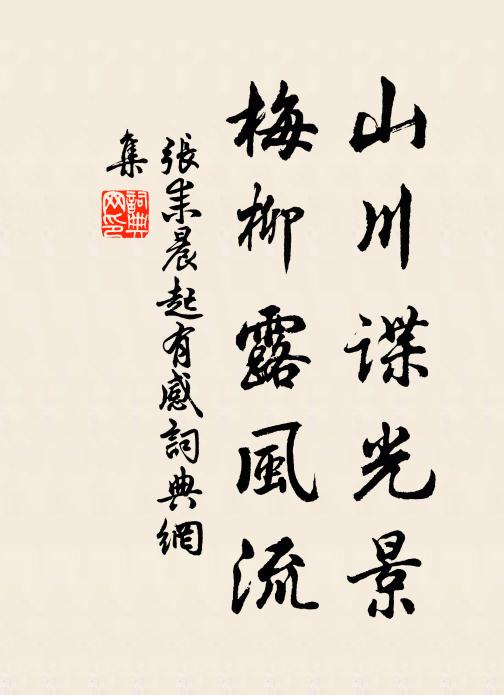 山川諜光景
梅柳露風流
張耒晨起有感詞典網
集
詞典網印